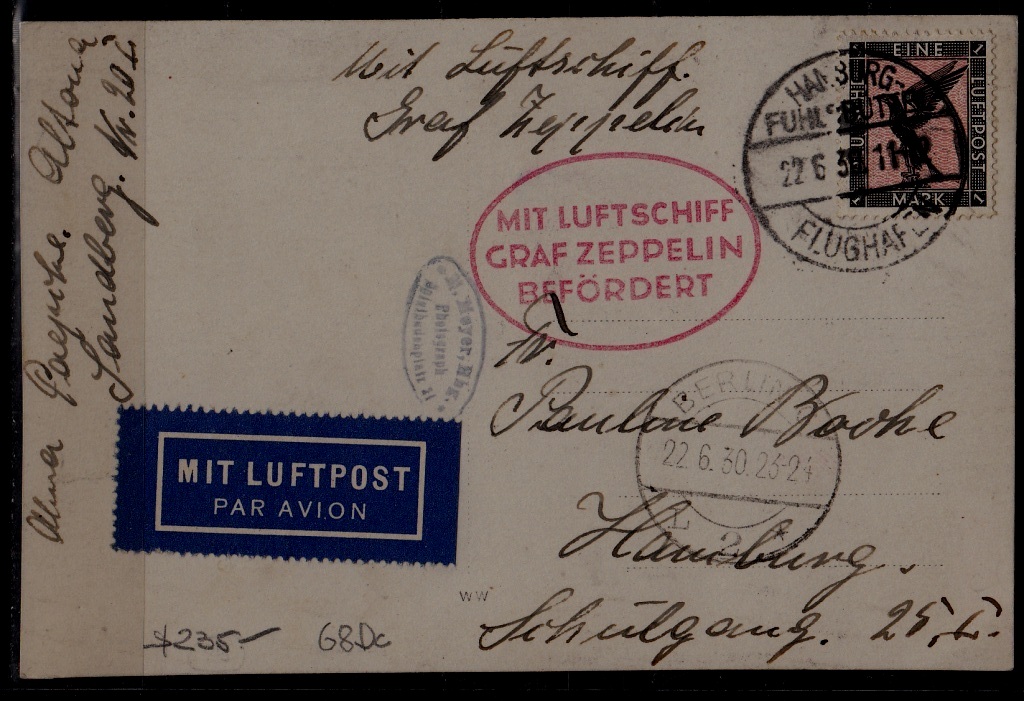 Mit Luftschiff.
Graf Zeppelin
EINE
LUFTPOST
MARK
HAMBURG-
FUHLSBÜTTEL
22.6.30.11-12
FLUGHAFEN
MIT LUFTSCHIFF
GRAF ZEPPELIN
BEFÖRDERT
M. Meyer, Hbg.
Photograph
Fr.
Pauline Boohe
BERLIN
22.6.30.23-24
L 2
Hamburg.
Schulgang. 25, I.
Alma Altona
Sandberg. Nr. 20 I
MIT LUFTPOST
PAR AVION
WW
$235-
68Dc